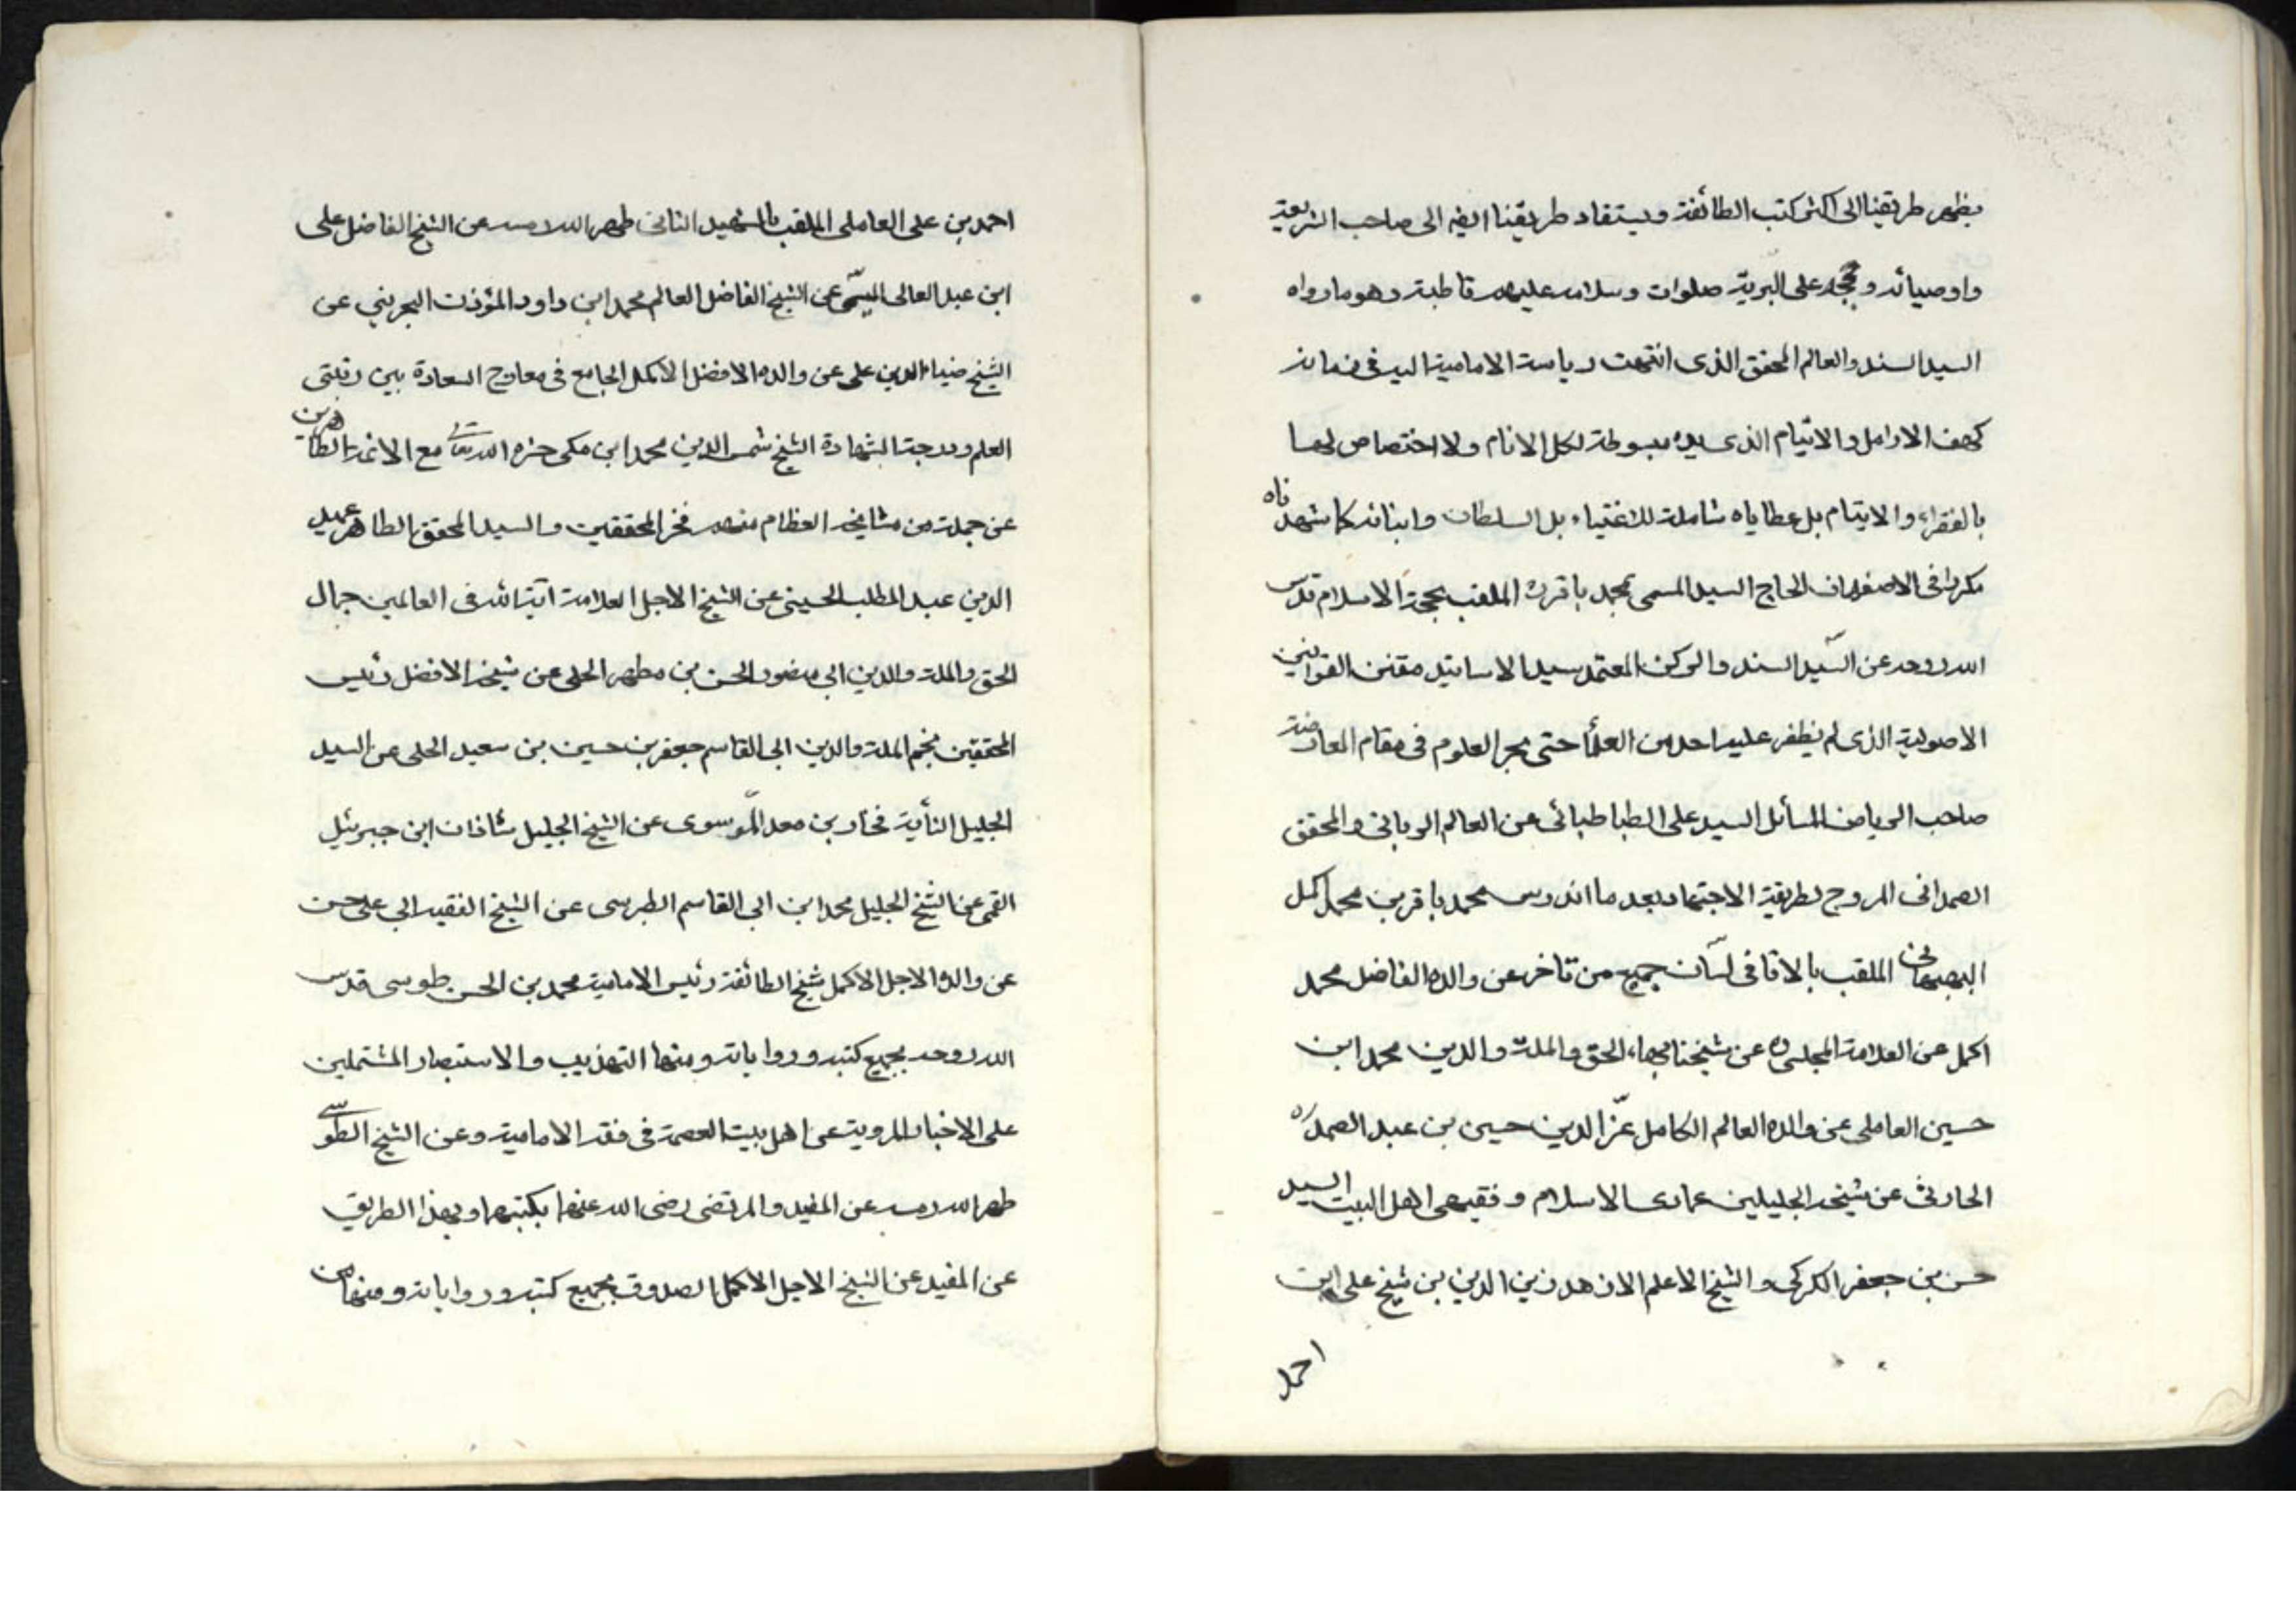 يظهر طريقنا الى اكثر كتب الطائفة ويستفاد طريقنا ايضا الى صاحب الشريعة
واوصيائه و حججه على البرية صلوات وسلامه عليهم قاطبة وهو ما رواه
السيد السند والعالم المحقق الذى انتهت رياسة الامامية اليه فى زمانه
كهف الارامل والايتام الذى يده مبسوطة لكل الانام ولا اختصاص لها
بالفقراء والايتام بل عطاياه شاملة للاغنياء بل السلطان وابنائه كما شهدناه
مكررا فى الاصفهان الحاج السيد المسمى بمحمد باقر الملقب بحجة الاسلام قدس
الله روحه عن السّيد السند والركن المعتمد سيد الاساتيد مقنن القوانين
الاصولية الذى لم يظفر عليه احد من العلمأ حتى بحر العلوم فى مقام المعارضة
صاحب الرياض المسائل السيد على الطباطبائى عن العالم الربانى والمحقق
الصمدانى المروج لطريقة الاجتهاد بعد ما اندرس محمد باقر بن محمد اكمل
البهبهانى الملقب بالاقا فى لسان جميع من تاخر عن والده الفاضل محمد
اكمل عن العلامة المجلسى ره عن شيخنا بهاء الحق والملة والدين محمد ابن
حسين العاملى عن والده العالم الكامل عزّ الدين حسين بن عبد الصمد ره
الحارثى عن شيخه الجليلين عمادى الاسلام و فقيهى اهل البيت السيد
حسن بن جعفر الكركى و الشيخ الاعلم الازهد زين الدين بن شيخ على ابن
احمد
احمد بن على العاملى الملقب بالشهيد الثانى طهر الله رمسه عن الشيخ الفاضل على
ابن عبد العالى الميسّى عن الشيخ الفاضل العالم محمد ابن داود المؤذن البحرينى عن
الشيخ ضياء الدين على عن والده الافضل الاكمل الجامع فى معارج السعادة بين رتبتى
العلم ودرجة الشهادة الشيخ شمس الدين محمد ابن مكى حشره الله تعالى مع الائمة الطاهرين
عن جملة من مشايخه العظام منهم فخر المحققين والسيد المحقق الطاهر عميد
الدين عبد المطلب الحسينى عن الشيخ الاجل العلامة آية الله فى العالمين جمال
الحق والملة والدين ابى منصور الحسن بن مطهر الحلى عن شيخه الافضل رئيس
المحققين نجم الملة والدين ابى القاسم جعفر بن حسين بن سعيد الحلى عن السيد
الجليل النسّأبة فخار بن معد الموسوى عن الشيخ الجليل شاذان ابن جبرئيل
القمى عن الشيخ الجليل محمد ابن ابى القاسم الطبرسى عن الشيخ الفقيه ابى على حسن
عن والده الاجل الاكمل شيخ الطائفة رئيس الامامية محمد بن الحسن طوسى قدس
الله روحه بجميع كتبه ورواياته ومنها التهذيب والاستبصار المشتملين
على الاخبار المروية عن اهل بيت العصمة فى فقه الامامية وعن الشيخ الطوسى
طهر الله رمسه عن المفيد والمرتضى رضى الله عنهما بكتبهما وبهذا الطريق
عن المفيد عن الشيخ الاجل الاكمل الصدوق بجميع كتبه ورواياته ومنها من